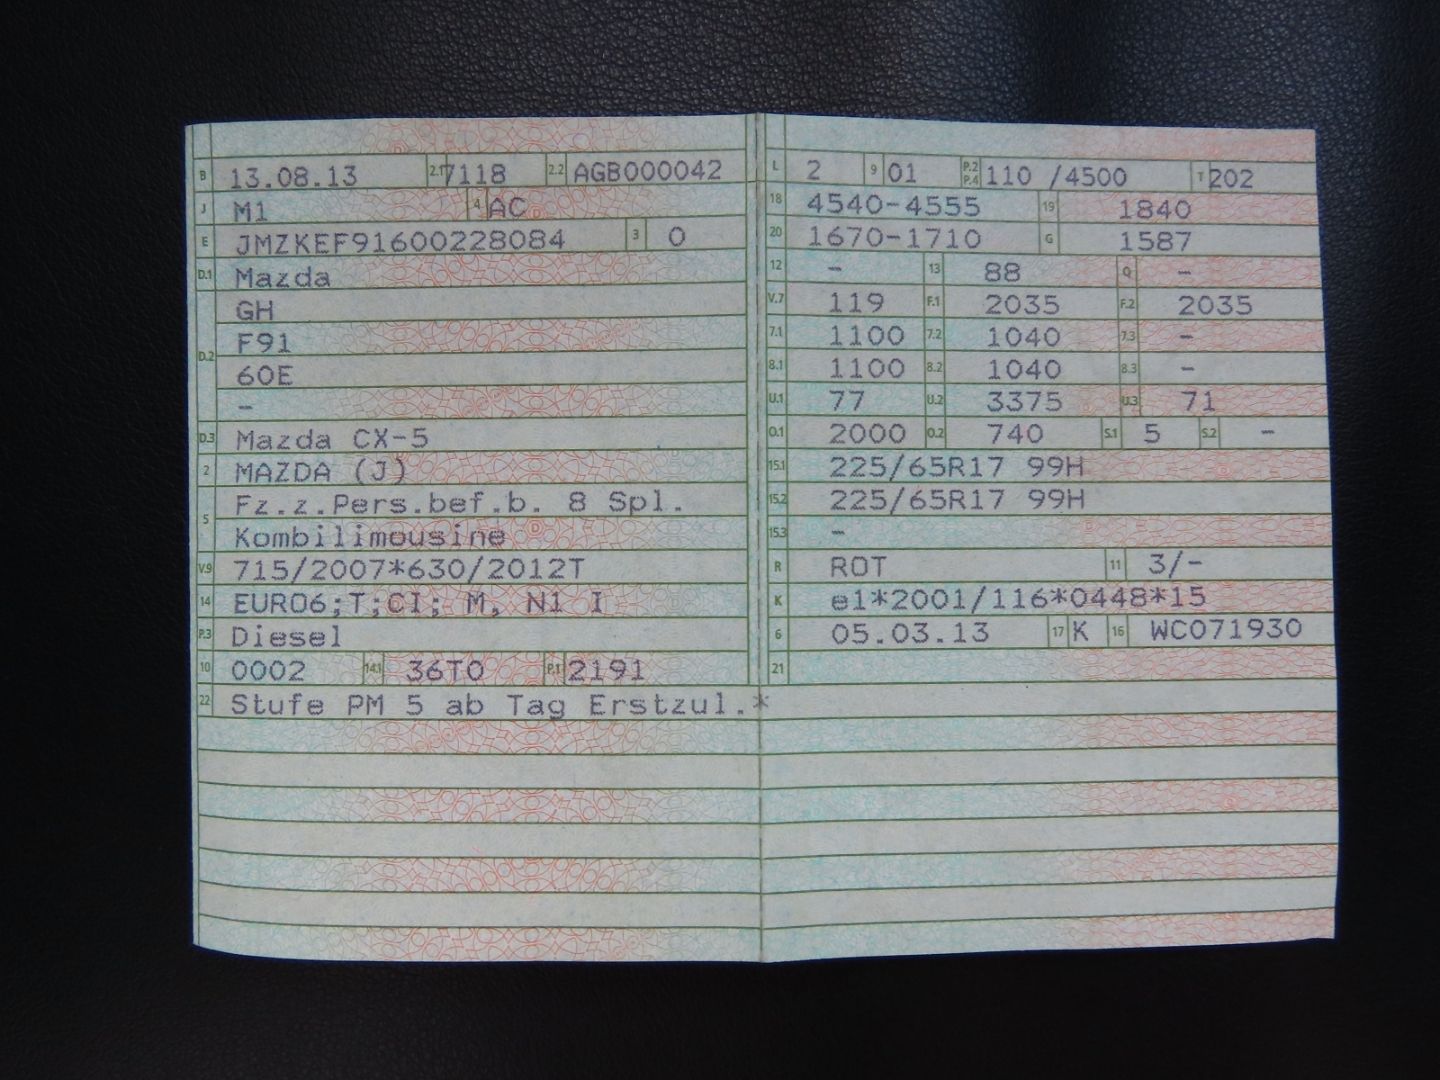 B 13.08.13 2.1 7118 2.2 AGB000042
J M1 4 AC
E JMZKEF91600228084 3 0
D.1 Mazda
GH
D.2 F91
60E
-
D.3 Mazda CX-5
2 MAZDA (J)
5 Fz.z.Pers.bef.b. 8 Spl.
Kombilimousine
V.9 715/2007*630/2012T
14 EURO6;T;CI; M, N1 I
P.3 Diesel
10 0002 14.1 36T0 P.1 2191
22 Stufe PM 5 ab Tag Erstzul.*
L 2 9 01 P.2 P.4 110 /4500 T 202
18 4540-4555 19 1840
20 1670-1710 G 1587
12 - 13 88 Q -
V.7 119 F.1 2035 F.2 2035
7.1 1100 7.2 1040 7.3 -
8.1 1100 8.2 1040 8.3 -
U.1 77 U.2 3375 U.3 71
O.1 2000 O.2 740 S.1 5 S.2 -
15.1 225/65R17 99H
15.2 225/65R17 99H
15.3 -
R ROT 11 3/-
K e1*2001/116*0448*15
6 05.03.13 17 K 16 WC071930
21